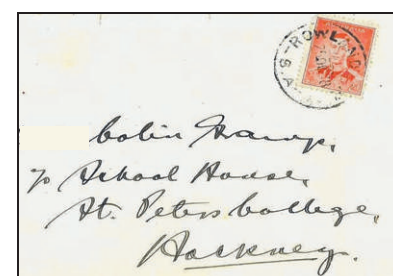 ROWLAND
S.A.
Colin Gramp,
c/o School House,
St. Peters College,
Hackney.